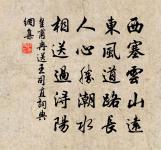 西塞雲山遠
東風道路長
人心勝潮水
相送過潯陽
皇甫冉送王司直詞典
網集